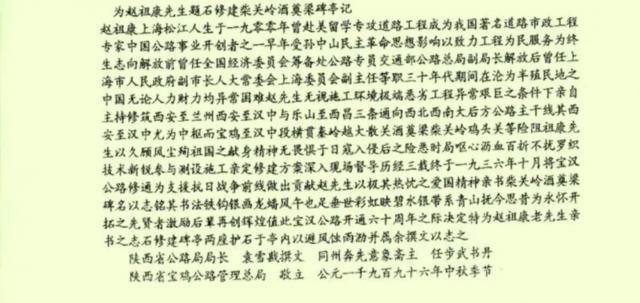 为赵祖康先生题石修建柴关岭酒奠梁碑亭记
赵祖康上海松江人生于一九零零年曾赴美留学专攻道路工程成为我国著名道路市政工程
专家中国公路事业开创者之一早年受孙中山民主革命思想影响以致力工程为民服务为终
生志向解放前曾任全国经济委员会筹备处公路专员交通部公路总局副局长解放后曾任上
海市人民政府副市长人大常委会上海委员会副主任等职三十年代期间在沦为半殖民地之
中国无论人力财力均异常困难赵先生无视施工环境极端恶劣工程异常艰巨之条件下亲自
主持修筑西安至兰州西安至汉中与乐山至西昌三条通向西北西南大后方公路主干线其西
安至汉中尤为中枢而宝鸡至汉中段横贯秦岭越大散关酒奠梁柴关岭鸡头关等险阻祖康先
生以久顾风尘殉祖国之献身精神无畏惧于日寇入侵后之险恶时局呕心沥血百折不扰罗织
技术新锐参与测设施工亲定修建方案深入现场督导历经三载终于一九三六年十月将宝汉
公路修通为支援抗日战争前线做出贡献赵先生以极其热忱之爱国精神亲书柴关岭酒奠梁
碑名以志铭其书法铁钩银画龙蟠凤午也足垂世彩虹映碧水银带系青山抚今思昔为永怀开
拓之先贤者激励后辈再创辉煌值此宝汉公路开通六十周年之际决定特为赵祖康老先生亲
书之志石修建碑亭两座护石于亭内以避风蚀雨泐并属余撰文以志之
陕西省公路局局长 袁雪戡撰文 同州奔先意象斋主 任步武书丹
陕西省宝鸡公路管理总局 敬立 公元一千九百九十六年中秋季节